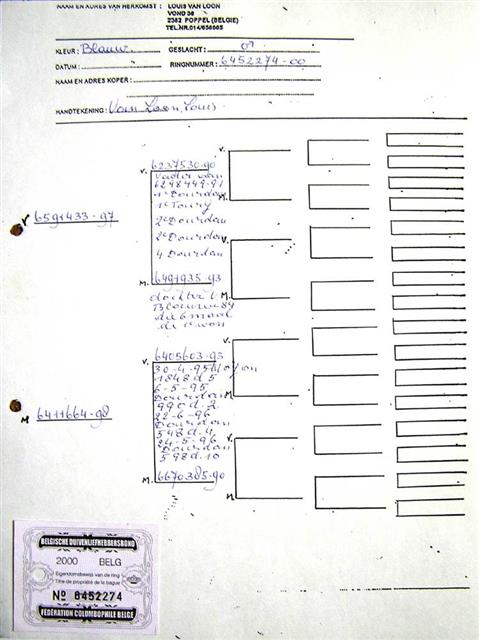 NAAM EN ADRES VAN HERKOMST: LOUIS VAN LOON
VOND 36
2382 POPPEL (BELGIE)
TEL.NR.014/656565
KLEUR: Blauw GESLACHT:
DATUM: RINGNUMMER: 6452274-00
NAAM EN ADRES KOPER:
HANDTEKENING: Van Loon, Louis
V. 6237530-90
Vader van
6298449-91
1e Dourdan
1e Toury
2e Dourdan
2e Dourdan
4 Dourdan
V 6591433-97
M. 6491935-93
dochter v.
Blauwe 84
die 6 maal
de 1e won
V. 6405603-93
30-4-95
1848 d 5
6-5-95
Dourdan
990 d. 2
22-6-96
Dourdan
548 d. 4
24-5-96
Dourdan
598 d. 10
M 6411664-98
M. 6670385-90
V.
M.
V.
M.
V.
M.
V.
M.
BELGISCHE DUIVENLIEFHEBBERSBOND
2000 BELG
Eigendomsbewijs van de ring
Titre de propriété de la bague
No 6452274
FÉDÉRATION COLOMBOPHILE BELGE